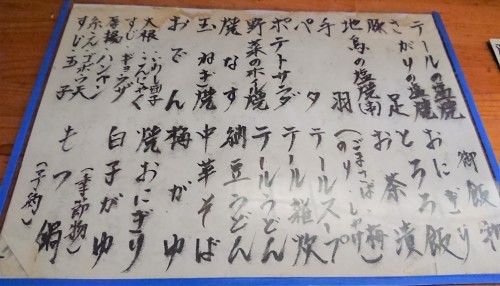 テールの塩焼
さがりの塩焼
豚足
地鳥の塩焼
手羽
バタ
ポテトサラダ
野菜のホイル焼
焼なす
玉ねぎ焼
おでん
大根
こんにゃく
厚揚・ハンペン
糸こん・ゴボウ天
すじ・玉子
御飯
おにぎり
とろろ飯
お茶漬
(のり・しゃけ
ごまさば・梅)
テールスープ
テール雑炊
テールうどん
納豆うどん
中華そば
梅がゆ
焼おにぎり
白子がゆ
(季節物)
もつ鍋
(予約)